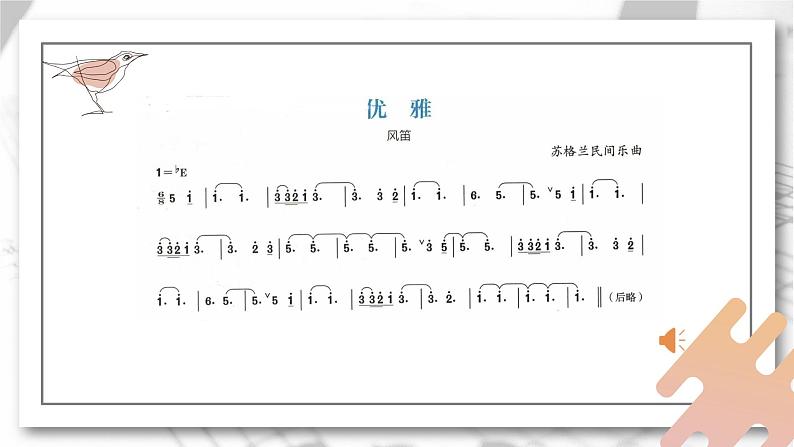 优 雅
风笛
苏格兰民间乐曲
1=♭E
6/8 5 i | i. i. | 3 3 2 i 3. | 3. 3 2 | i. i. | 6. 5. | 5. ∨ 5 i | i. i. |
3 3 2 i 3. | 3. 2 3 | 5. 5. | 5. 5. | 5. ∨ 3 5 | 5. 5. | 3 3 2 i 3. | 3. 3 2 |
i. i. | 6. 5. | 5. ∨ 5 i | i. i. | 3 3 2 i 3. | 3. 2. | i. i. | i. i. | i. ‖ (后略)